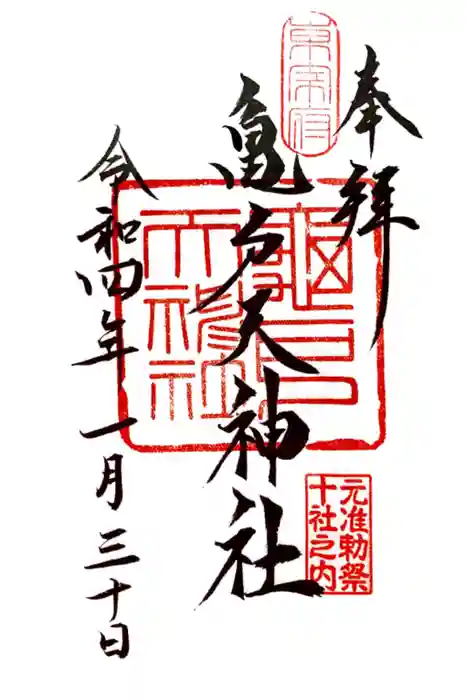 奉拝
東宰府
亀戸天神社
龜戸
天神社
元准勅祭
十社之内
令和四年一月三十日